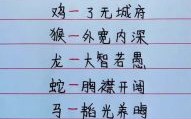 鸡一了无城府
猴一外宽内深
龙一大智若愚
蛇一胸襟开阔
马一韬光养晦